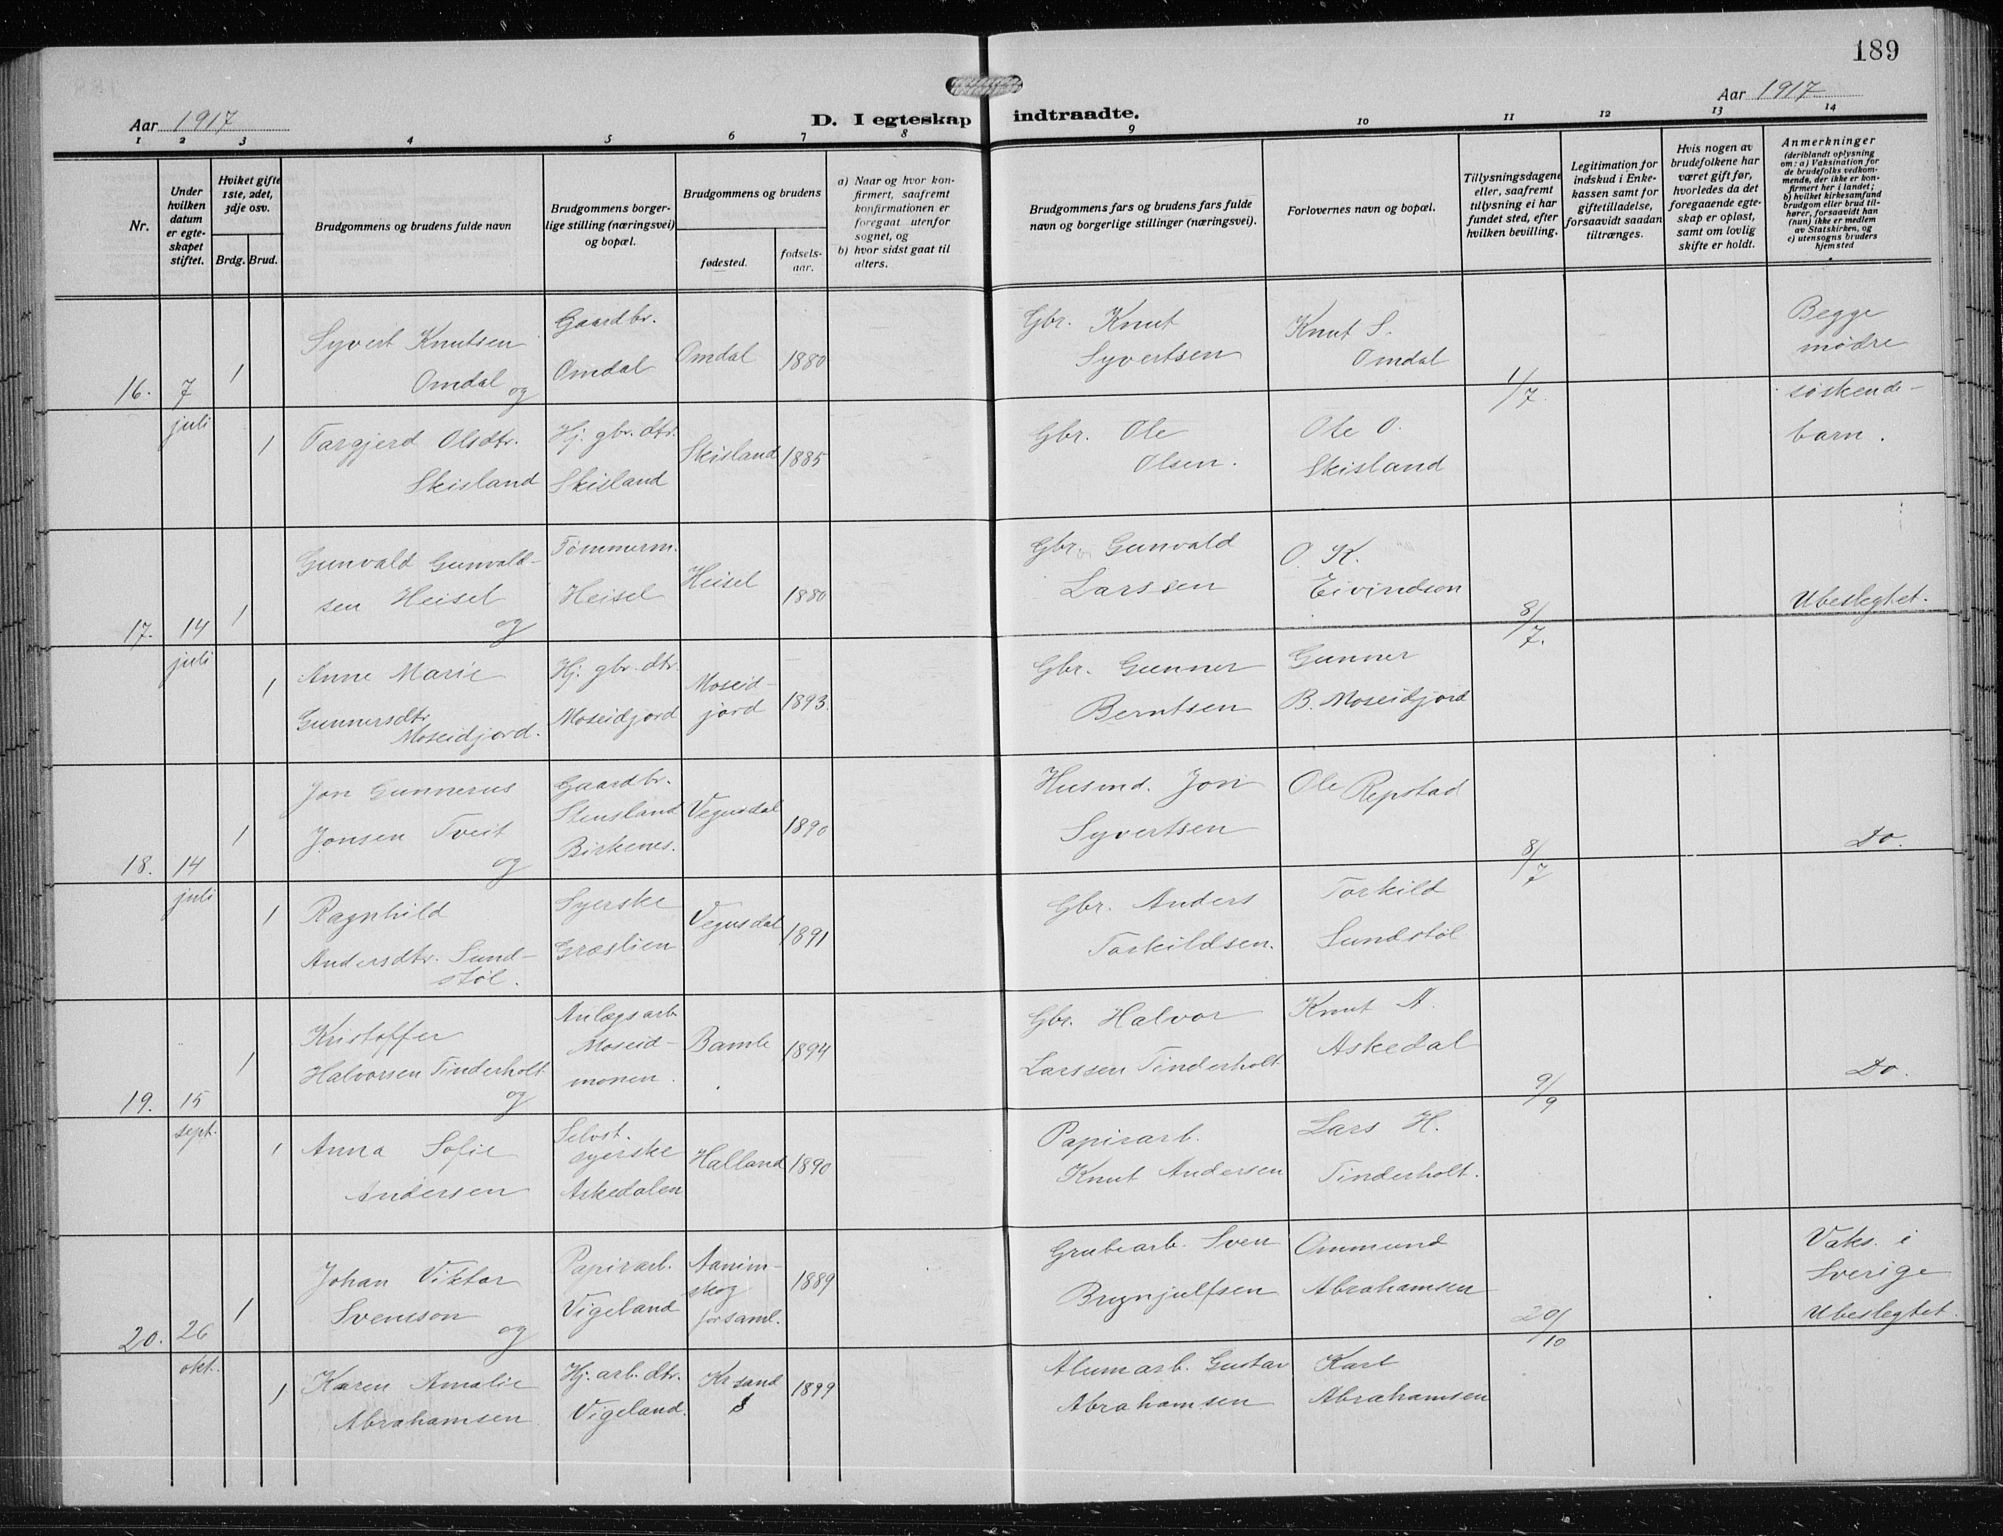 189
Aar 1917
D. I egteskap indtraadte.
Aar 1917
1 2 3 4 5 6 7 8 9 10 11 12 13 14
Nr.
Under hvilken datum er egteskapet stiftet.
Hviket gifte 1ste, 2det, 3dje osv.
Brdg. Brud.
Brudgommens og brudens fulde navn
Brudgommens borgerlige stilling (næringsvei) og bopæl.
Brudgommens og brudens
fødested.
fodselsaar.
a) Naar og hvor konfirmert, saafremt konfirmationen er foregaat utenfor sognet, og
b) hvor sidst gaat til alters.
Brudgommens fars og brudens fars fulde navn og borgerlige stillinger (næringsvei).
Forlovernes navn og bopæl.
Tillysningsdagene eller, saafremt tillysning ei har fundet sted, efter hvilken bevilling.
Legitimation for indskud i Enkekassen samt for giftetilladelse, forsaavidt saadan tiltrænges.
Hvis nogen av brudefolkene har været gift før, hvorledes da det foregaaende egteskap er opløst, samt om lovlig skifte er holdt.
Anmerkninger
(deriblandt oplysning om: a) Vaksination for de brudefolks vedkommende, der ikke er konfirmert her i landet; b) hvilket kirkesamfund brudgom eller brud tilhører, forsaavidt han (hun) ikke er medlem av Statskirken, og c) utensogns bruders hjemsted
16. 7 juli
1
Syvert Knutsen
Omdal og
Gaardbr.
Omdal
Omdal
1880
Gbr. Knut
Syvertsen
Knut S.
Omdal
1/7.
Begge
mødre
søskende-
barn.
1
Targjerd Olsdtr.
Skisland
Hj. gbr. dtr.
Skisland
Skisland
1885
Gbr. Ole
Olsen.
Ole O.
Skisland
17. 14 juli
1
Gunvald Gunvald-
sen Heisel
og
Tømmerm.
Heisel
Heisel
1880
Gbr. Gunvald
Larssen
O. K.
Eivindson
8/7.
Ubeslegtet.
1
Anne Marie
Gunnersdtr.
Moseidjord.
Hj. gbr. dtr.
Moseidjord
Moseid-
jord
1893.
Gbr. Gunner
Berntsen
Gunner
B. Moseidjord
18. 14 juli
1
Jon Gunnerus
Jonsen Tveit
og
Gaardbr.
Stensland
Birkenes.
Vegusdal
1890
Husmd. Jon
Syvertsen
Ole Repstad
8/7
Do.
1
Ragnhild
Andersdtr. Sund-
støl.
Syerske
Græslien
Vegusdal
1891
Gbr. Anders
Torkildsen.
Torkild
Sundstøl
19. 15 sept.
1
Kristoffer
Halvorsen Tinderholt
og
Anlægsarb.
Moseid-
monen.
Bamle
1894
Gbr. Halvor
Larssen Tinderholt
Knut A.
Askedal
9/9
Do.
1
Anna Sofie
Andersen
Selvst.
syerske
Askedalen
Halland
1890
Papirarb.
Knut Andersen
Lars H.
Tinderholt.
20. 26 okt.
1
Johan Viktor
Svenson
og
Papirarb.
Vigeland
Aanim-
skog
forsaml.
1889
Grubearb. Sven
Brynjulfsen
Ommund
Abrahamsen
20/10
Vaks. i
Sverige
Ubeslegtet.
1
Karen Amalie
Abrahamsen
Hj. arb. dtr.
Vigeland.
Kr sand
S
1899
Alumarb. Gustav
Abrahamsen
Karl
Abrahamsen